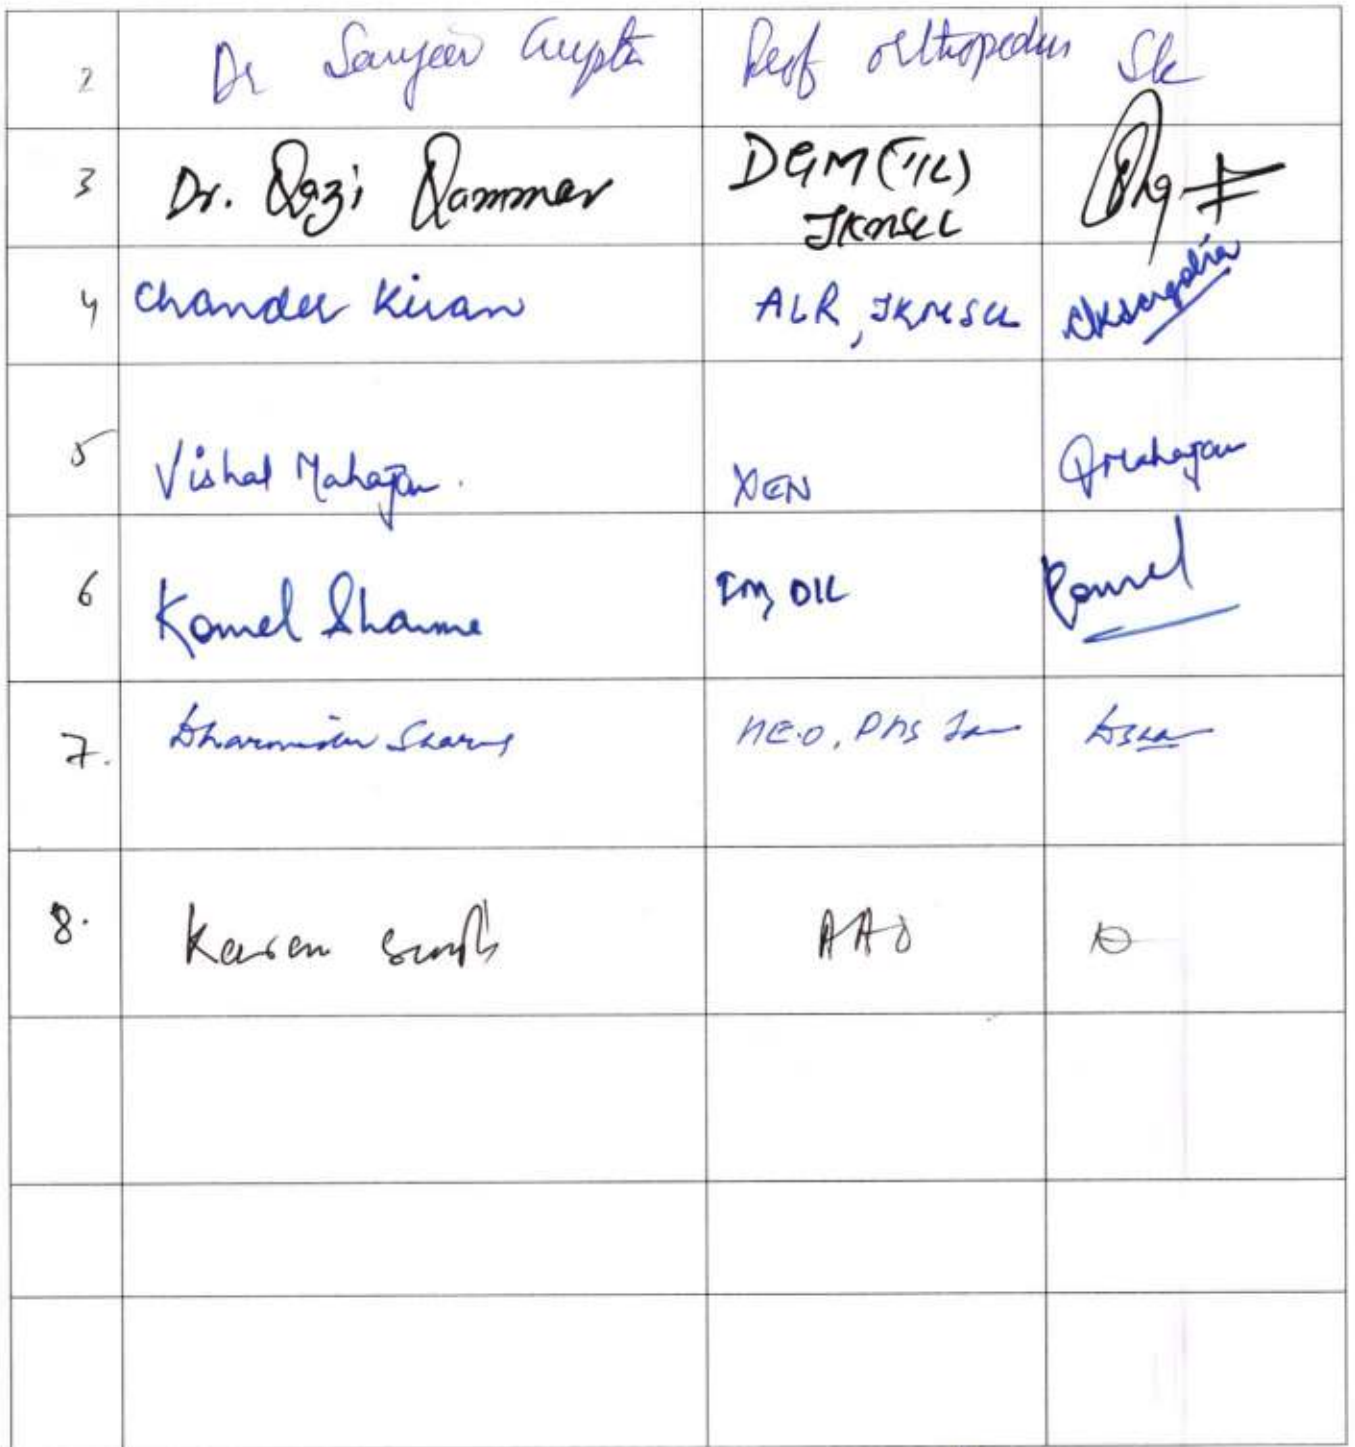 2 Dr Sanjeev Gupta Prof Orthopedics Sk
3 Dr. Qazi Qammar DGM (IIL)
JKMSCL
4 Chander Kiran ALR, JKMSCL
5 Vishal Mahajan. XEN Mahajan
6 Komel Sharma IIL Komel
7. Dharminder Sharma PMS
8. Karan Singh AAO